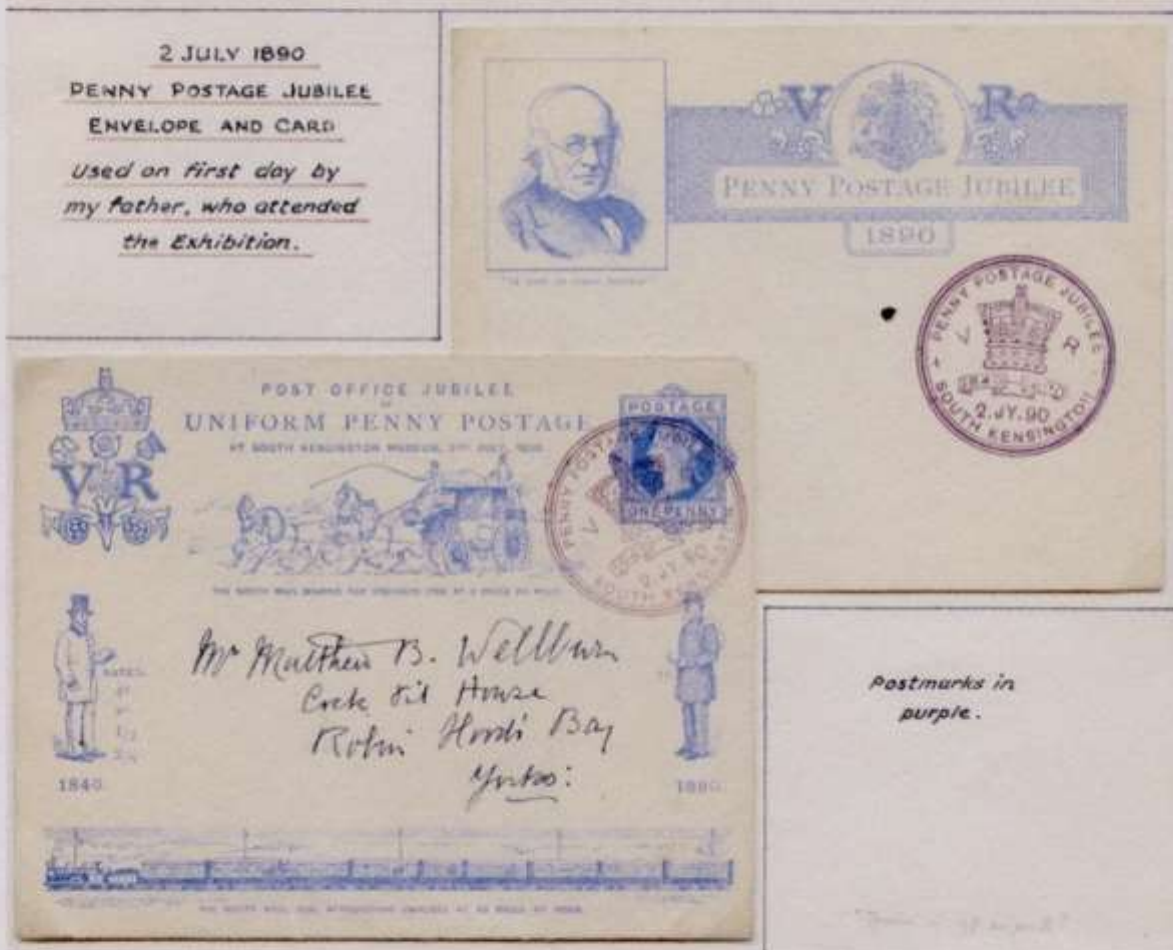 2 JULY 1890
PENNY POSTAGE JUBILEE
ENVELOPE AND CARD
Used on first day by
my father, who attended
the Exhibition.
V R
PENNY POSTAGE JUBILEE
1890
PENNY POSTAGE JUBILEE
V R
2.JY.90
SOUTH KENSINGTON
POST OFFICE JUBILEE
OF
UNIFORM PENNY POSTAGE
AT SOUTH KENSINGTON MUSEUM, 2ND JULY, 1890.
VR
POSTAGE
ONE PENNY
PENNY POSTAGE JUBILEE
V
2 JY.90
SOUTH KENSINGTON
Mr Matthew B. Wellburn
House
Robin Hood's Bay
Yorks:
1840.
1890.
Postmarks in
purple.